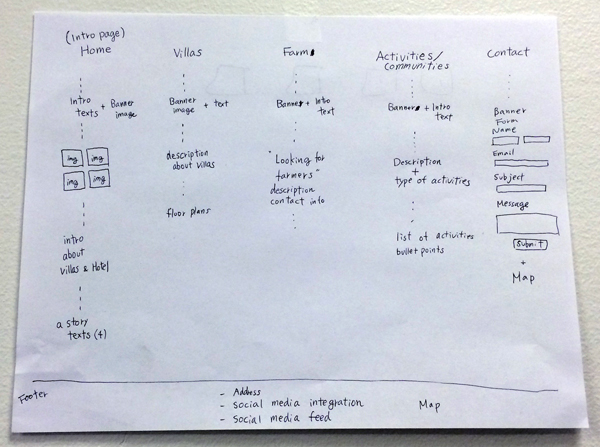 (Intro page)
Home
Intro texts + Banner image
img img
img img
intro
about
Villas & Hotel
a story
texts (4)
Villas
Banner image + text
description
about villas
floor plans
Farm
Banner + Intro text
"Looking for
farmers"
description
contact info
Activities/
Communities
Banner + Intro text
Description
+
type of activities
list of activities
bullet points
Contact
Banner
Form
Name
Email
Subject
Message
Submit
+
Map
Footer
- Address
- social media integration
- social media feed
Map